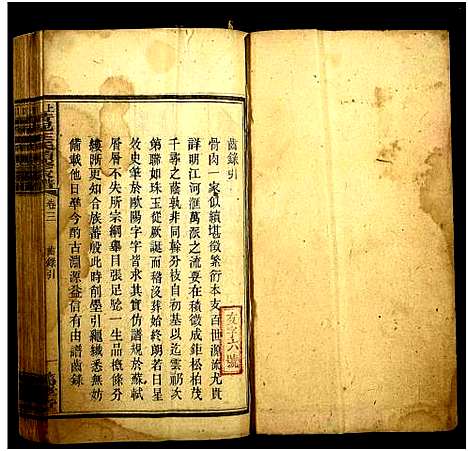 齒錄引
骨肉一家似續堪徵繁衍本支百世源流尤貴
詳明江河滙萬派之流要在積微成鉅松柏茂
千尋之蔭孰非同幹分枝自初基以迄雲礽次
第聯如珠玉從厥誕而稽沒葬始終朗若日星
效史筆於歐陽字字皆成實蹟仿譜規於蘇軾
層層不失所宗綱舉目張足騐一生品概條分
縷晰更知合族蕃般此時削墨引繩纖悉無妨
備載他日舉今酌古淵源益信有由譜齒錄
友字六號
卷三
齒錄引